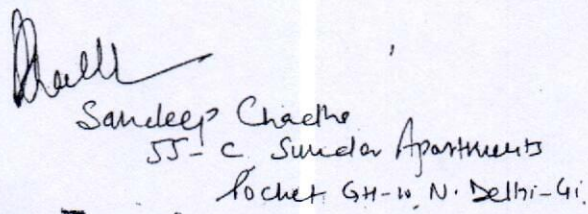 Sandeep Chadha
55-C Sunder Apartments
Pocket GH-10, N. Delhi-41